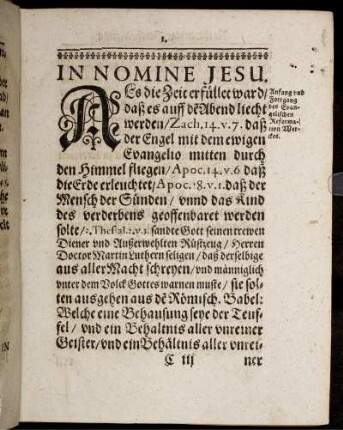 1.
IN NOMINE JESU.
Als die Zeit erfüllet ward/
daß es auff dē Abend liecht
werden/ Zach. 14. v. 7. daß
der Engel mit dem ewigen
Evangelio mitten durch
den Himmel fliegen/ Apoc. 14. v. 6 daß
die Erde erleuchtet/ Apoc. 18. v. 1. daß der
Mensch der Sünden/ vnnd das Kind
des verderbens geoffenbaret werden
solte/ 2. Thessal. 2. v. 3. sandte Gott seinen trewen
Diener vnd Außerwehlten Rüstzeug/ Herren
Doctor Martin Luthern seligen/ daß derselbige
aus aller Macht schreyen/ vnd männiglich
vnter dem Volck Gottes warnen muste/ sie sol-
ten ausgehen aus dē Römisch. Babel:
Welche eine Behausung seye der Teuf-
fel/ vnd ein Behältnis aller vnreiner
Geister/ vnd ein Behältnis aller vnrei-
C iij
ner
Anfang vnd
Fortgang
des Evan-
gelischen
Reforma-
tion Wer-
ckes.